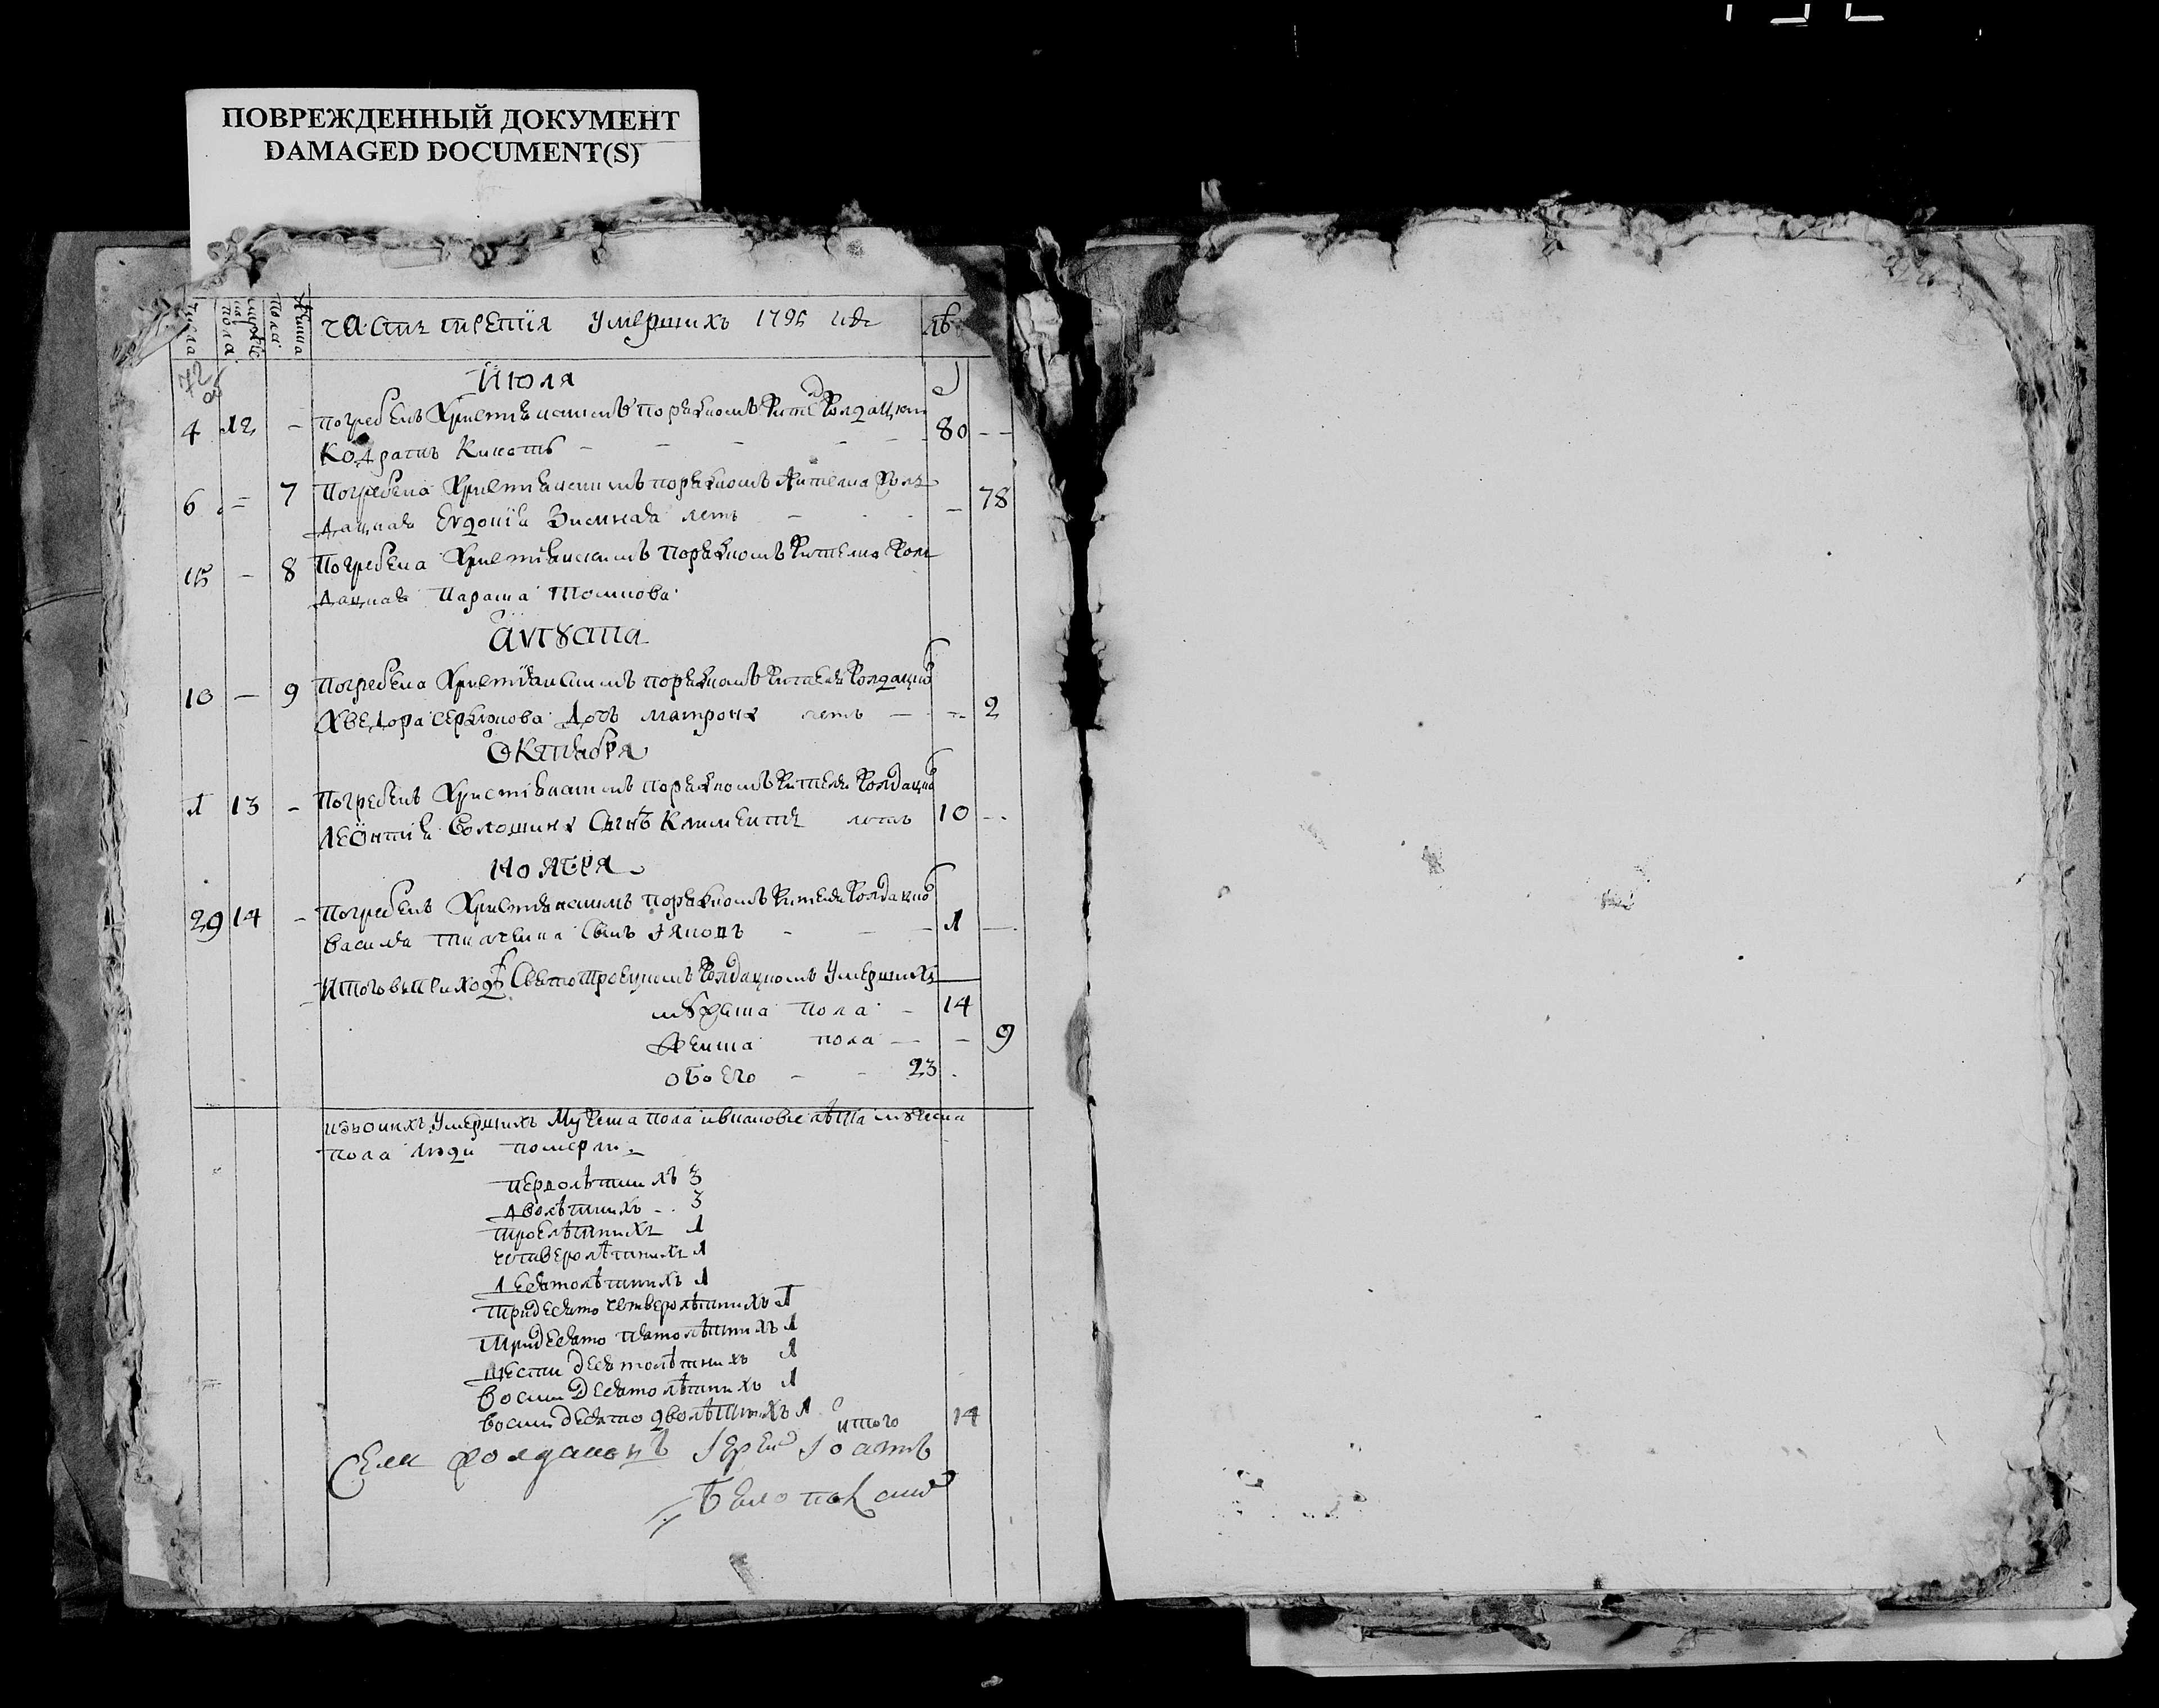 ПОВРЕЖДЕННЫЙ ДОКУМЕНТ
DAMAGED DOCUMENT(S)
числа
мужеска пола
женска пола
часть третїя умершихъ 1795 года лѣ
72 об
Июля
4 12 - погребенъ христїанскимъ порядкомъ житель Колдацкий
Кодратъ 80 - -
6 - 7 Погребена христїанскимъ порядкомъ жителка Кол
дацкая Евдокїя лѣтъ - - 78
15 - 8 Погребена христїанскимъ порядкомъ жителка Кол
дацкая Параска
Аѵгꙋста
10 - 9 Погребена христїанскимъ порядкомъ жителя Колдацкого
Хведора дочь Матрона лѣтъ - - 2
Октября
1 13 - Погребенъ христїанскимъ порядкомъ жителя Колдацкого
Леонтїя Волошина сынъ Климентїй лѣтъ 10 - -
Ноября
29 14 - Погребенъ христїанскимъ порядкомъ жителя Колдацкого
Василя сынъ - - - 1 -
Итого въ приходѣ Свято Троецкомъ Колдацкомъ умершихъ
мꙋжеска пола - 14
женска пола - - 9
обоего - - 23
изъ оныхъ умершихъ мужеска пола в каковые лѣта мꙋжеска
пола люди померли
перволѣтнихъ 3
дволѣтнихъ - - 3
троелѣтнихъ 1
четверолѣтнихъ 1
десятолѣтнихъ 1
тридесято четверолѣтнихъ 1
тридесято пятолѣтнихъ 1
шестидесятолѣтнихъ 1
восмидесятолѣтнихъ 1
восмидесято дволѣтнихъ 1
итого 14
Села їерей Їоаннъ